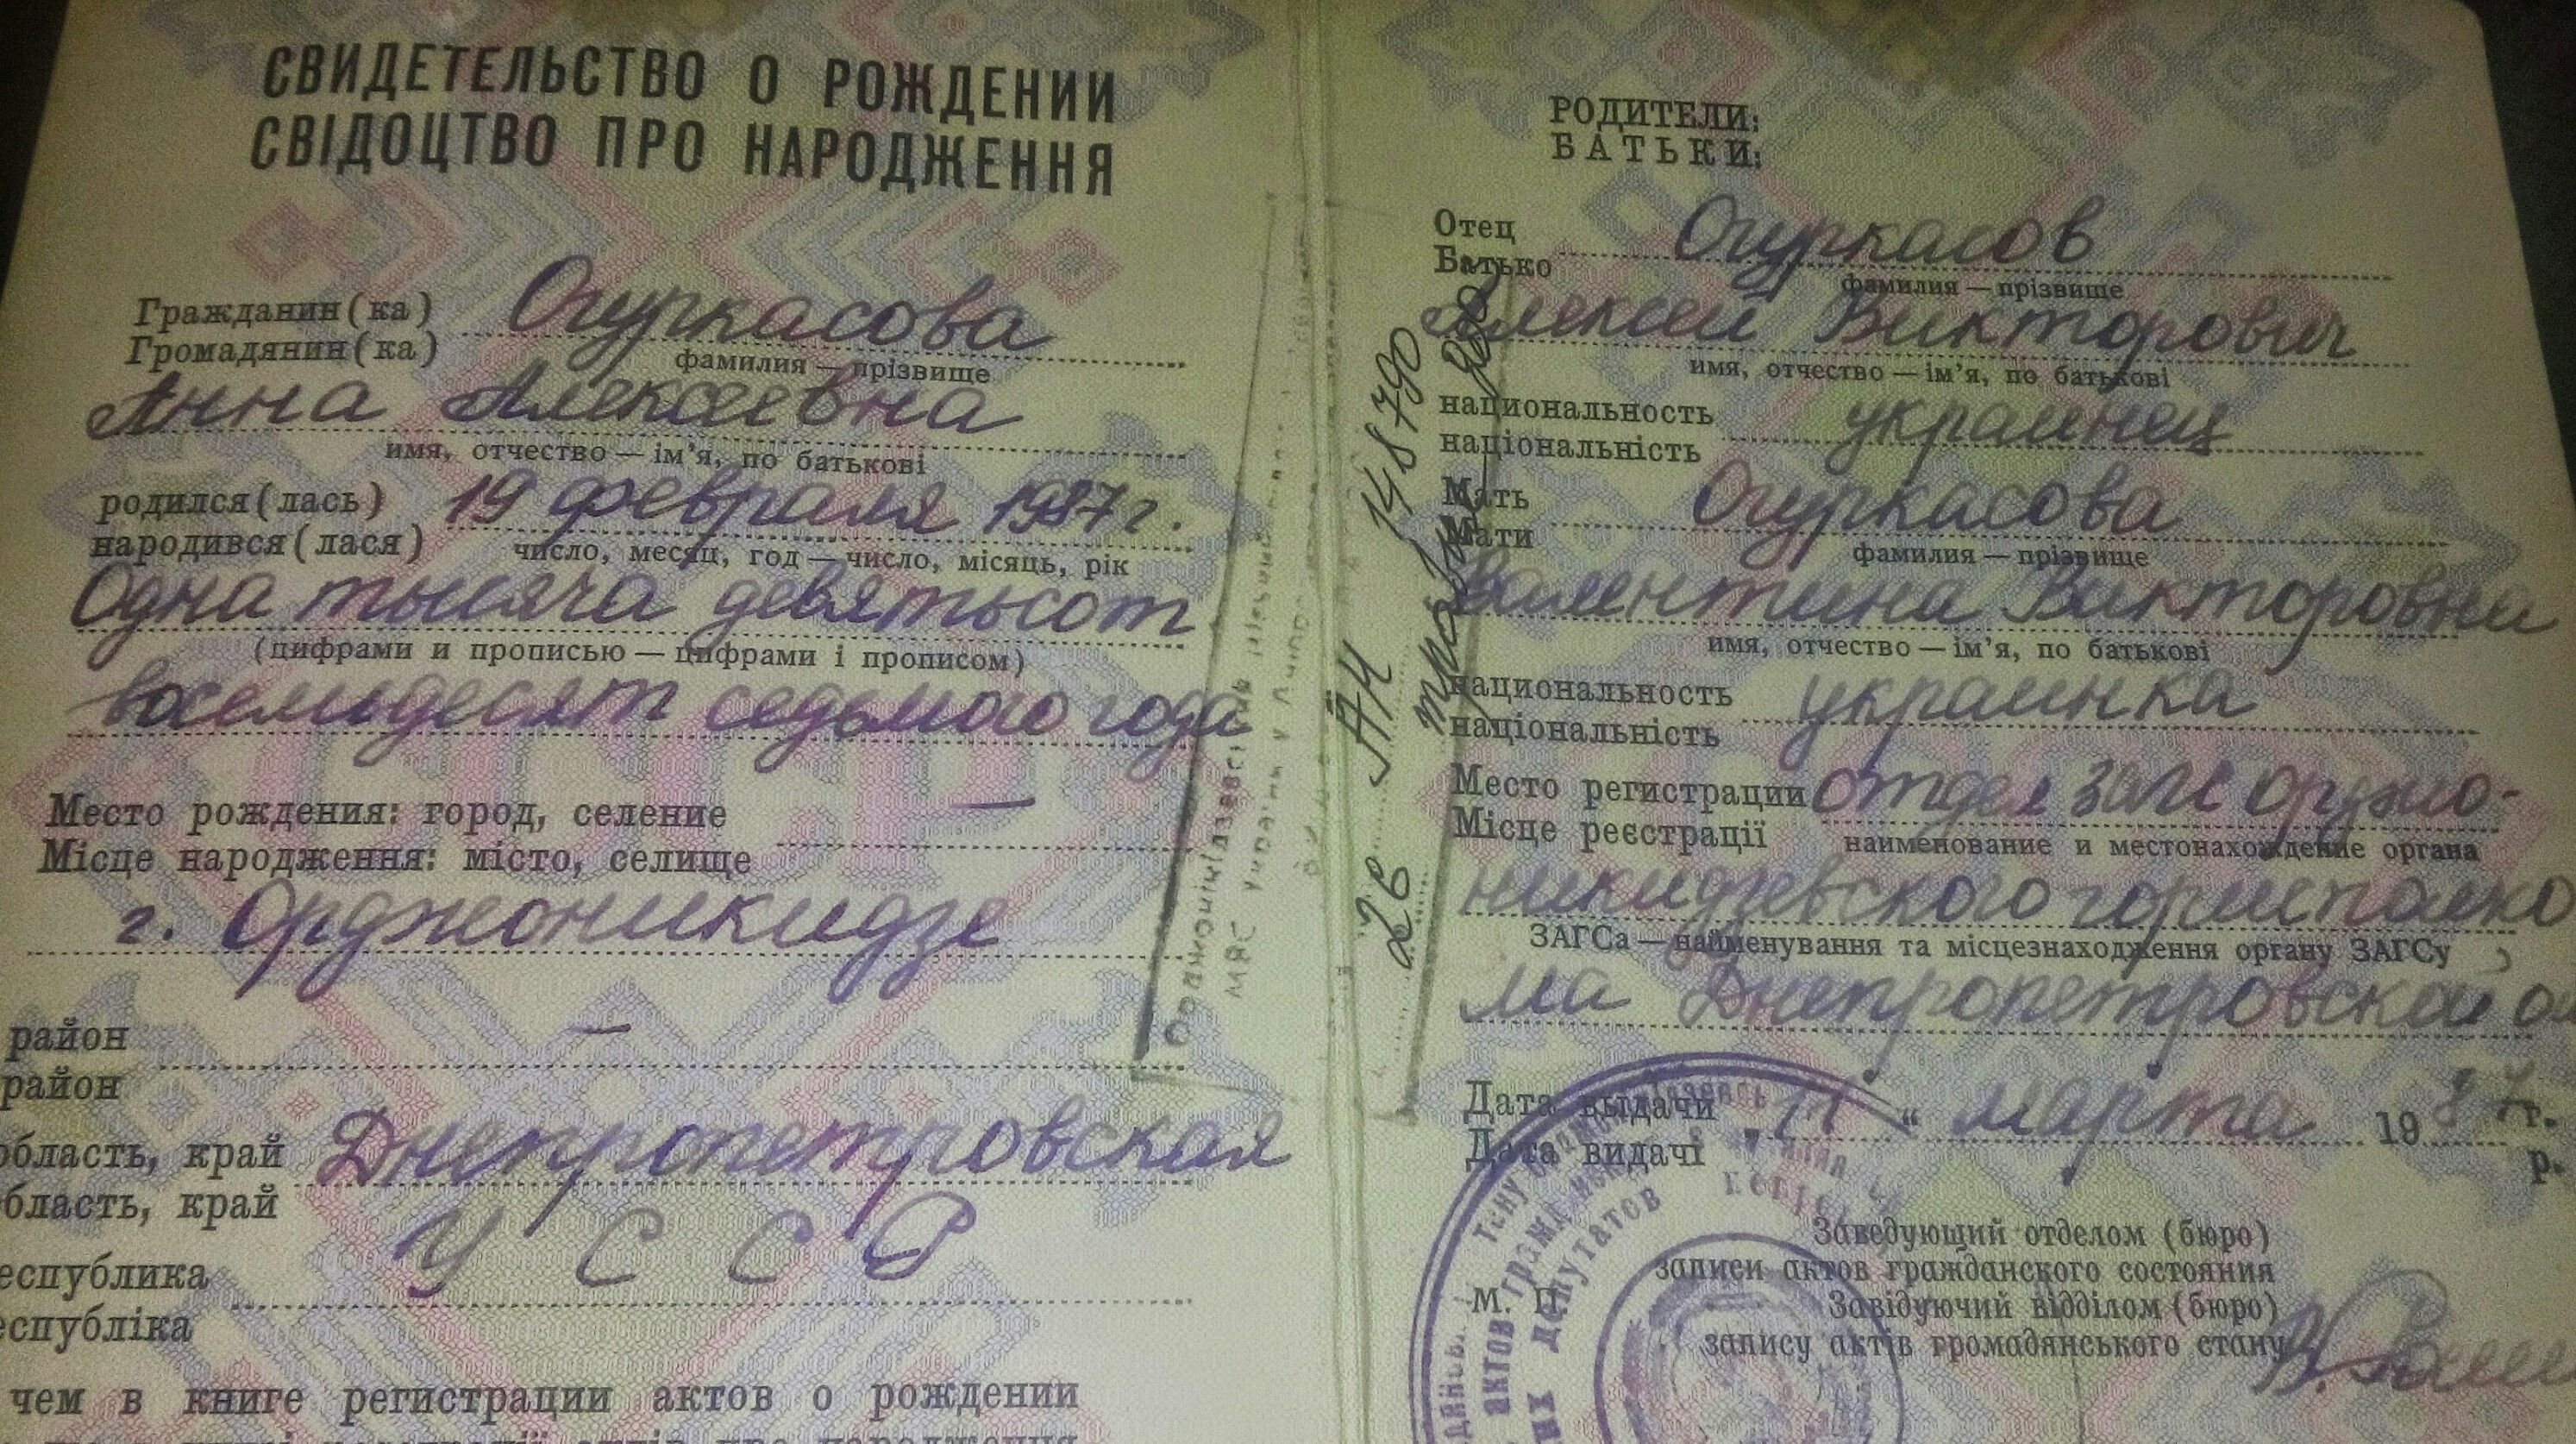 СВИДЕТЕЛЬСТВО О РОЖДЕНИИ
СВІДОЦТВО ПРО НАРОДЖЕННЯ
Гражданин(ка) Огуркасова
Громадянин(ка)
фамилия — прізвище
Анна Алексеевна
имя, отчество — ім'я, по батькові
родился(лась) 19 февраля 1987 г.
народився(лася)
число, месяц, год — число, місяць, рік
Одна тысяча девятьсот
(цифрами и прописью — цифрами і прописом)
восемьдесят седьмого года
Место рождения: город, селение —
Місце народження: місто, селище
г. Орджоникидзе
район —
район
область, край Днепропетровская
область, край
еспублика УССР
еспубліка
чем в книге регистрации актов о рождении
РОДИТЕЛИ:
БАТЬКИ:
Отец Огуркасов
Батько
фамилия — прізвище
Алексей Викторович
имя, отчество — ім'я, по батькові
национальность украинец
національність
Мать Огуркасова
Мати
фамилия — прізвище
Валентина Викторовна
имя, отчество — ім'я, по батькові
национальность украинка
національність
Место регистрации отдел ЗАГС Орджо-
Місце реєстрації
наименование и местонахождение органа
никидзевского горисполко
ЗАГСа — найменування та місцезнаходження органу ЗАГСу
ма Днепропетровской о
Дата выдачи „11" марта 1987 г.
Дата видачі р.
Заведующий отделом (бюро)
записи актов гражданского состояния
М. П. Завідуючий відділом (бюро)
запису актів громадянського стану
АН 148790
МВС України
депутатов